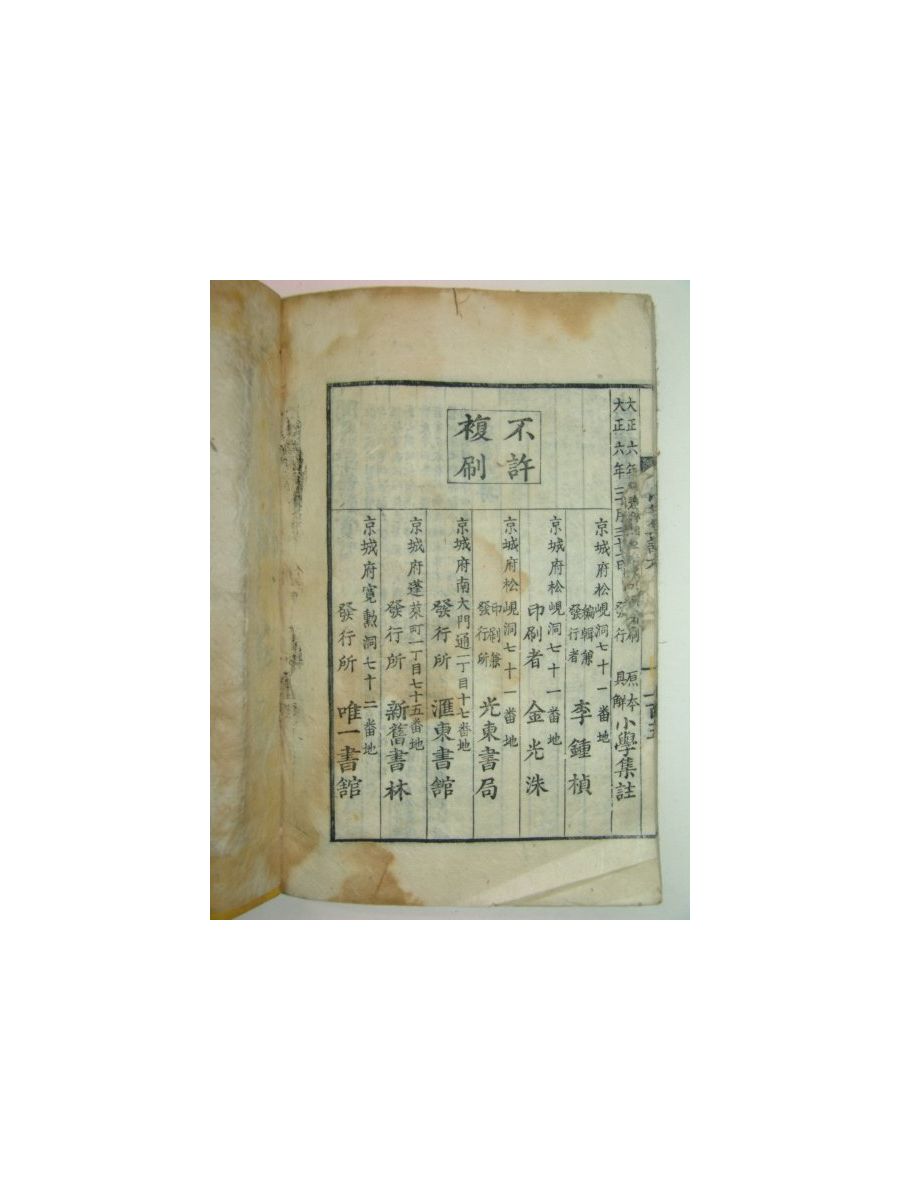 大正六年
大正六年 發行
原本
具解
小學集註
不許
複刷
京城府松峴洞七十一番地
編輯兼
發行者
李鍾楨
京城府松峴洞七十一番地
印刷者 金光洙
京城府松峴洞七十一番地
印刷兼
發行所
光東書局
京城府南大門通一丁目十七番地
發行所 滙東書館
京城府蓬萊町一丁目七十五番地
發行所 新舊書林
京城府寬勳洞七十二番地
發行所 唯一書館